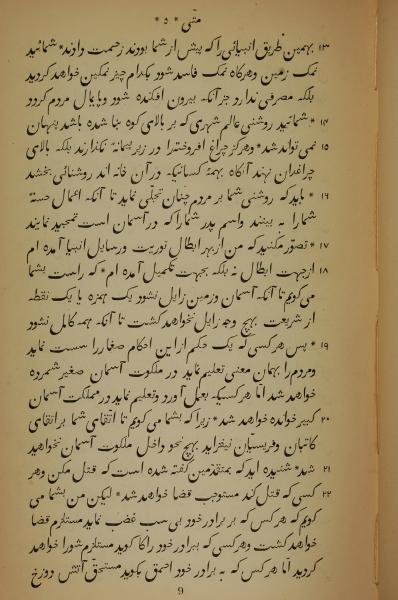 متی * ۵ *
۱۳ بهمین طریق انبیائی را که پیش از شما بودند زحمت دادند * شمائید
نمک زمین و هرگاه نمک فاسد شود بکدام چیز نمکین خواهد گردید
بلکه مصرفی ندارد جز آنکه بیرون افکنده شود و پایمال مردم گردد
۱۴ * شمائید روشنی عالم شهری که بر بالای کوه بنا شده باشد پنهان
۱۵ نمی تواند شد * و هرگز چراغ افروخته را در زیر پیمانه نگذارند بلکه بالای
چراغدان نهند آنگاه بهمهٔ کسانیکه در آن خانه اند روشنائی بخشد
۱۶ * باید که روشنی شما بر مردم چنان تجلّی نماید تا آنکه اعمال حسنهٔ
شما را به بینند و اسم پدر شما را که در آسمان است تمجید نمایند
۱۷ * تصوّر مکنید که من از بهر ابطال توریت و رسایل انبیا آمده ام
۱۸ از جهت ابطال نه بلکه بجهت تکمیل آمده ام * که راست بشما
می گویم تا آنکه آسمان و زمین زایل نشود یک همزه یا یک نقطه
از شریعت بهیچ وجه زایل نخواهد گشت تا آنکه همه کامل نشود
۱۹ * پس هر کسی که یک حکم از این احکام صغار را سست نماید
و مردم را بهمان معنی تعلیم نماید در ملکوت آسمان صغیر شمرده
خواهد شد امّا هر کسیکه بعمل آورد و تعلیم نماید در مملکت آسمان
۲۰ کبیر خوانده خواهد شد * زیرا که بشما می گویم تا اتقای شما بر اتقای
کاتبان و فریسیان نیفزاید بهیچ نحو داخل ملکوت آسمان نخواهید
۲۱ شد * شنیده اید که بمتقدّمین گفته شده است که قتل مکن و هر
۲۲ کسی که قتل کند مستوجب قضا خواهد شد * لیکن من بشما می
گویم که هر کس که بر برادر خود بی سبب غضب نماید مستلزم قضا
خواهد گشت و هر کسی که ببرادر خود راکا گوید مستلزم شورا خواهد
گردید امّا هر کس که به برادر خود احمق بگوید مستحق آتش دوزخ
9